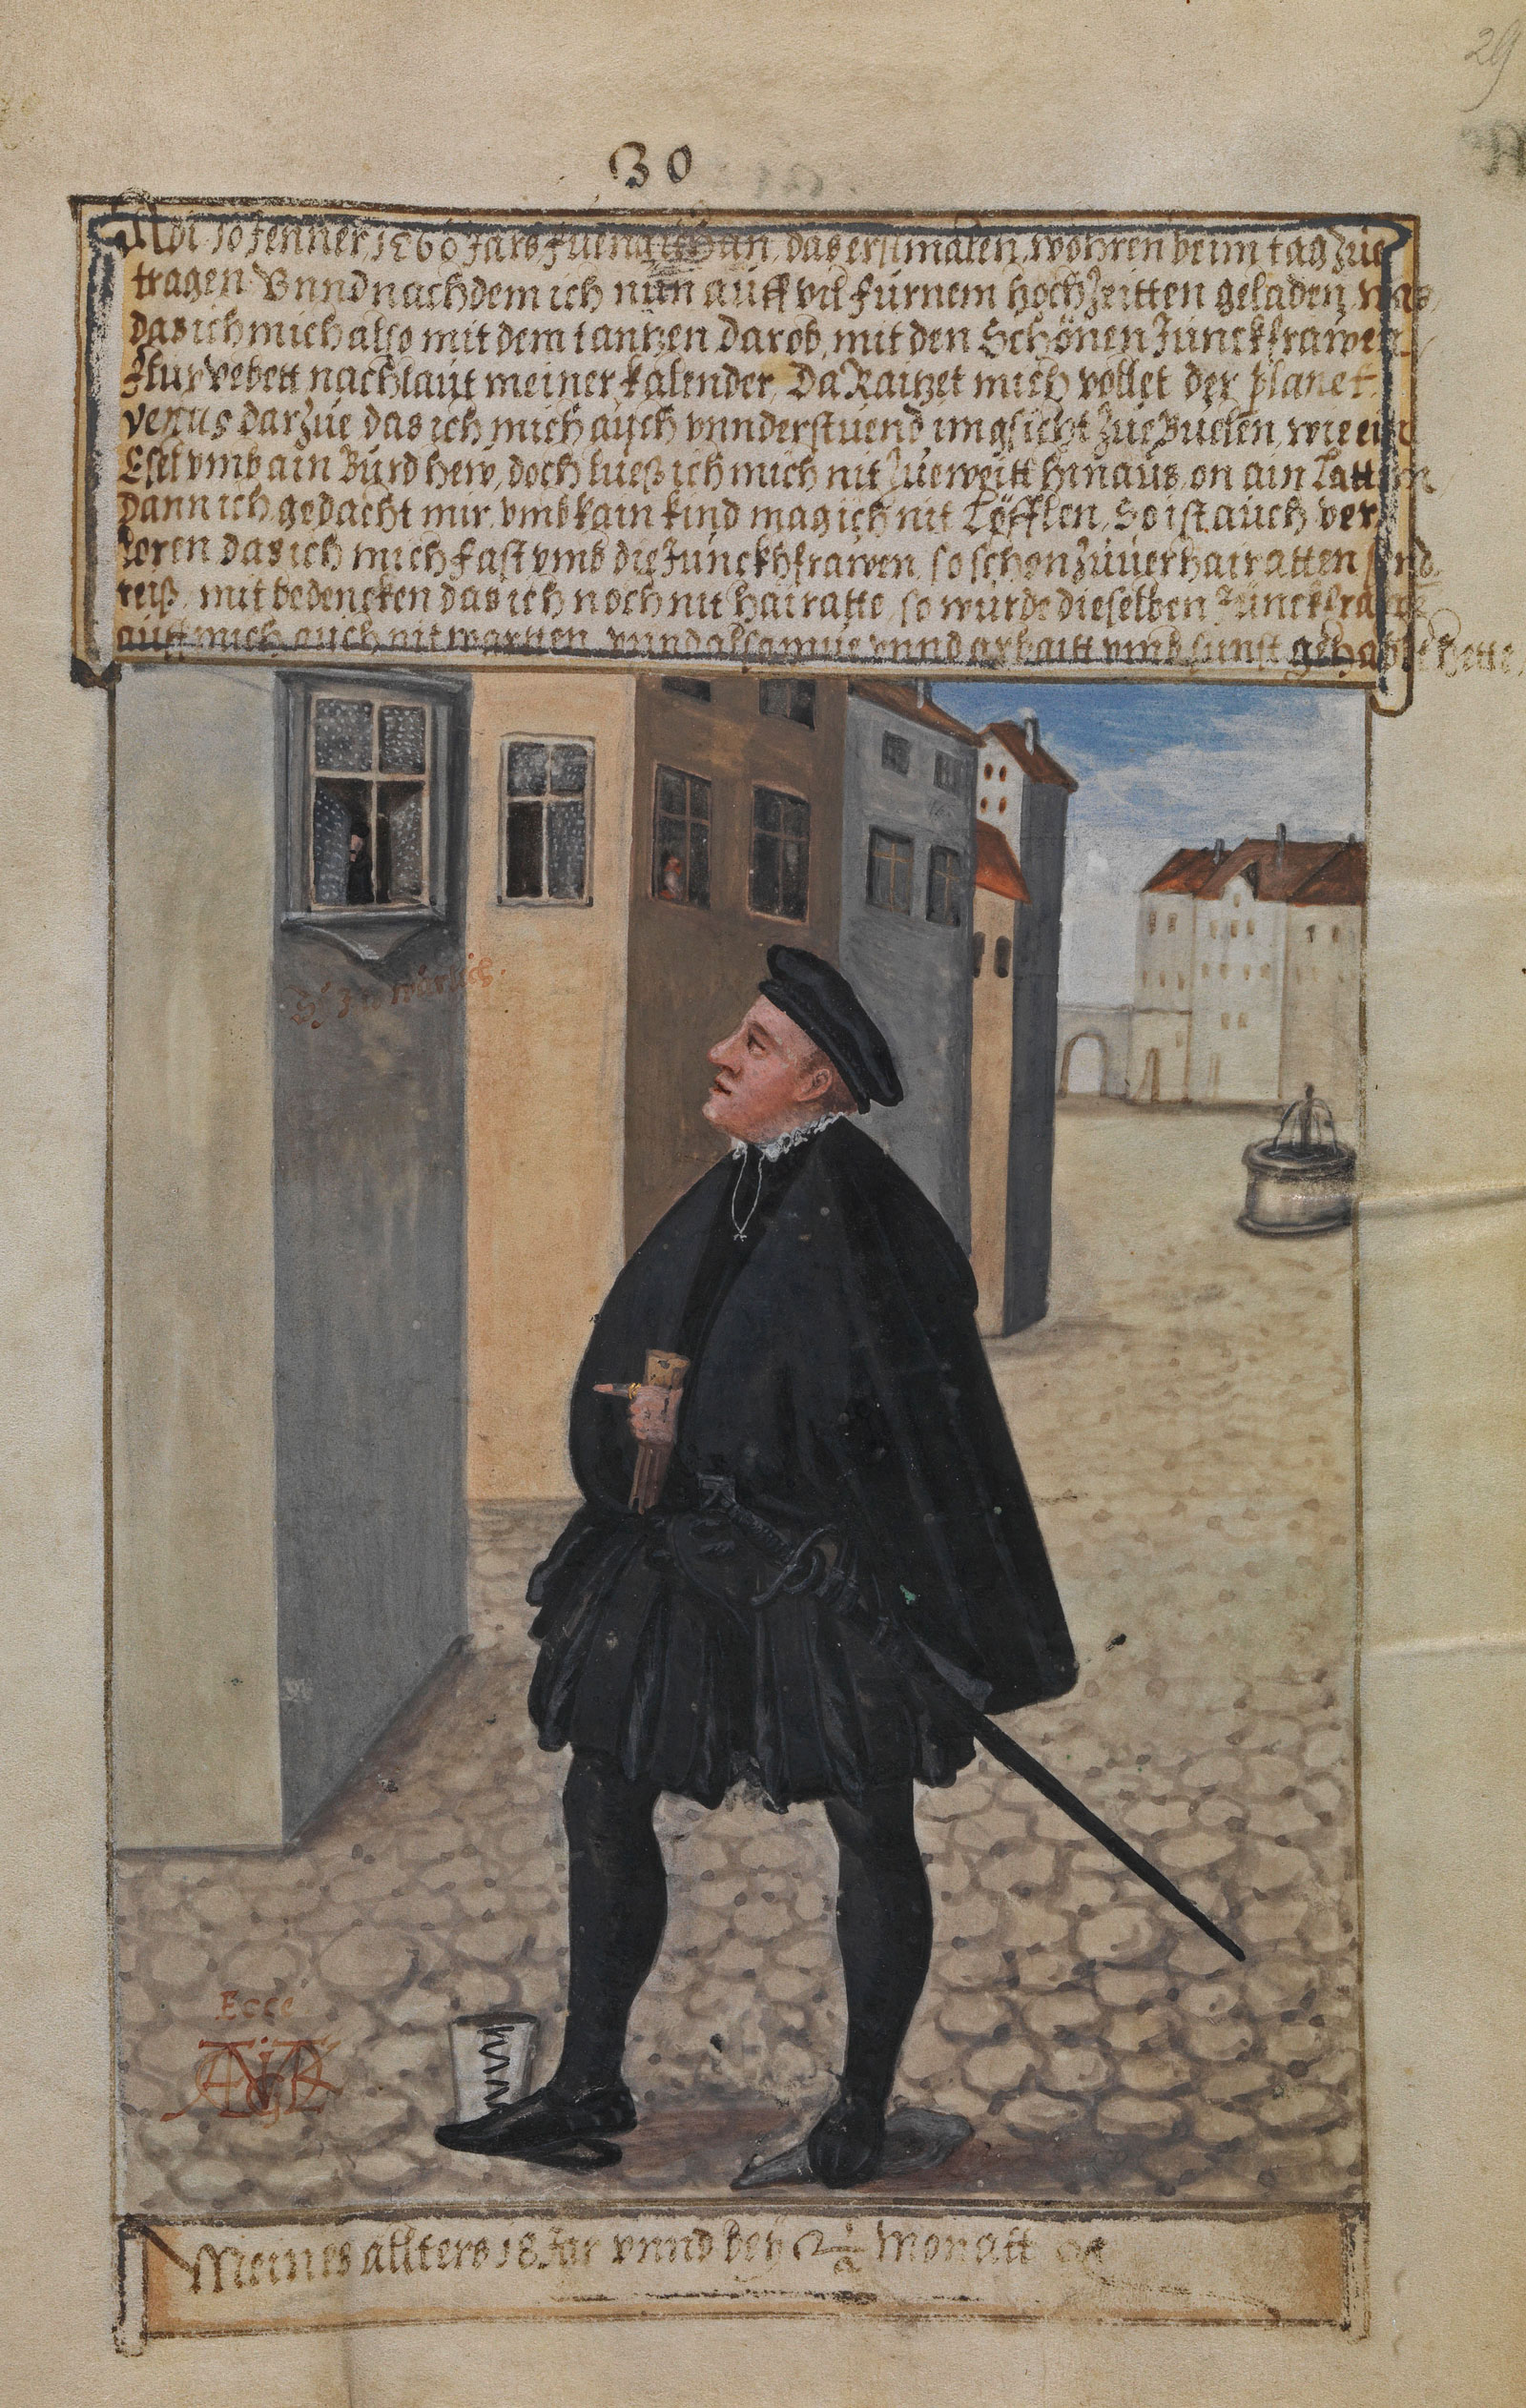 29
30
Adi 10 Jenner, 1560 Jars Fueng ich an, das erstmalen, wöhren beim tag zue
tragen Vnnd nachdem ich nun auff vil fürnem hochzeitten geladen was,
das ich mich also mit dem tantzen darob, mit den Schönen Junckfrawen
nach laut meiner kalender, Da Raitzet mich vollet der planet
venus darzue das ich mich auch vnnderstuend im gsicht zue Buelen, wie ein
Esel vmb ain Bürd hew, doch lueß ich mich nit zue weitt hinaus, on ain
Dann ich gedacht mir, vmb kain kind mag ich nit Löfflen, So ist auch ver,
loren das ich mich fast vmb die Junckhfrawen, so schon zuuerhairatten send
reiß, mit bedencken das ich noch nit hairatte, so wurde dieselben Junckfraw
auff mich auch nit wartten, vnnd also mue vnnd arbaitt vmb sunst gehabt hette,
Ecce
Meines allters 18 Jar vnnd beÿ 2 1/2 Monatt